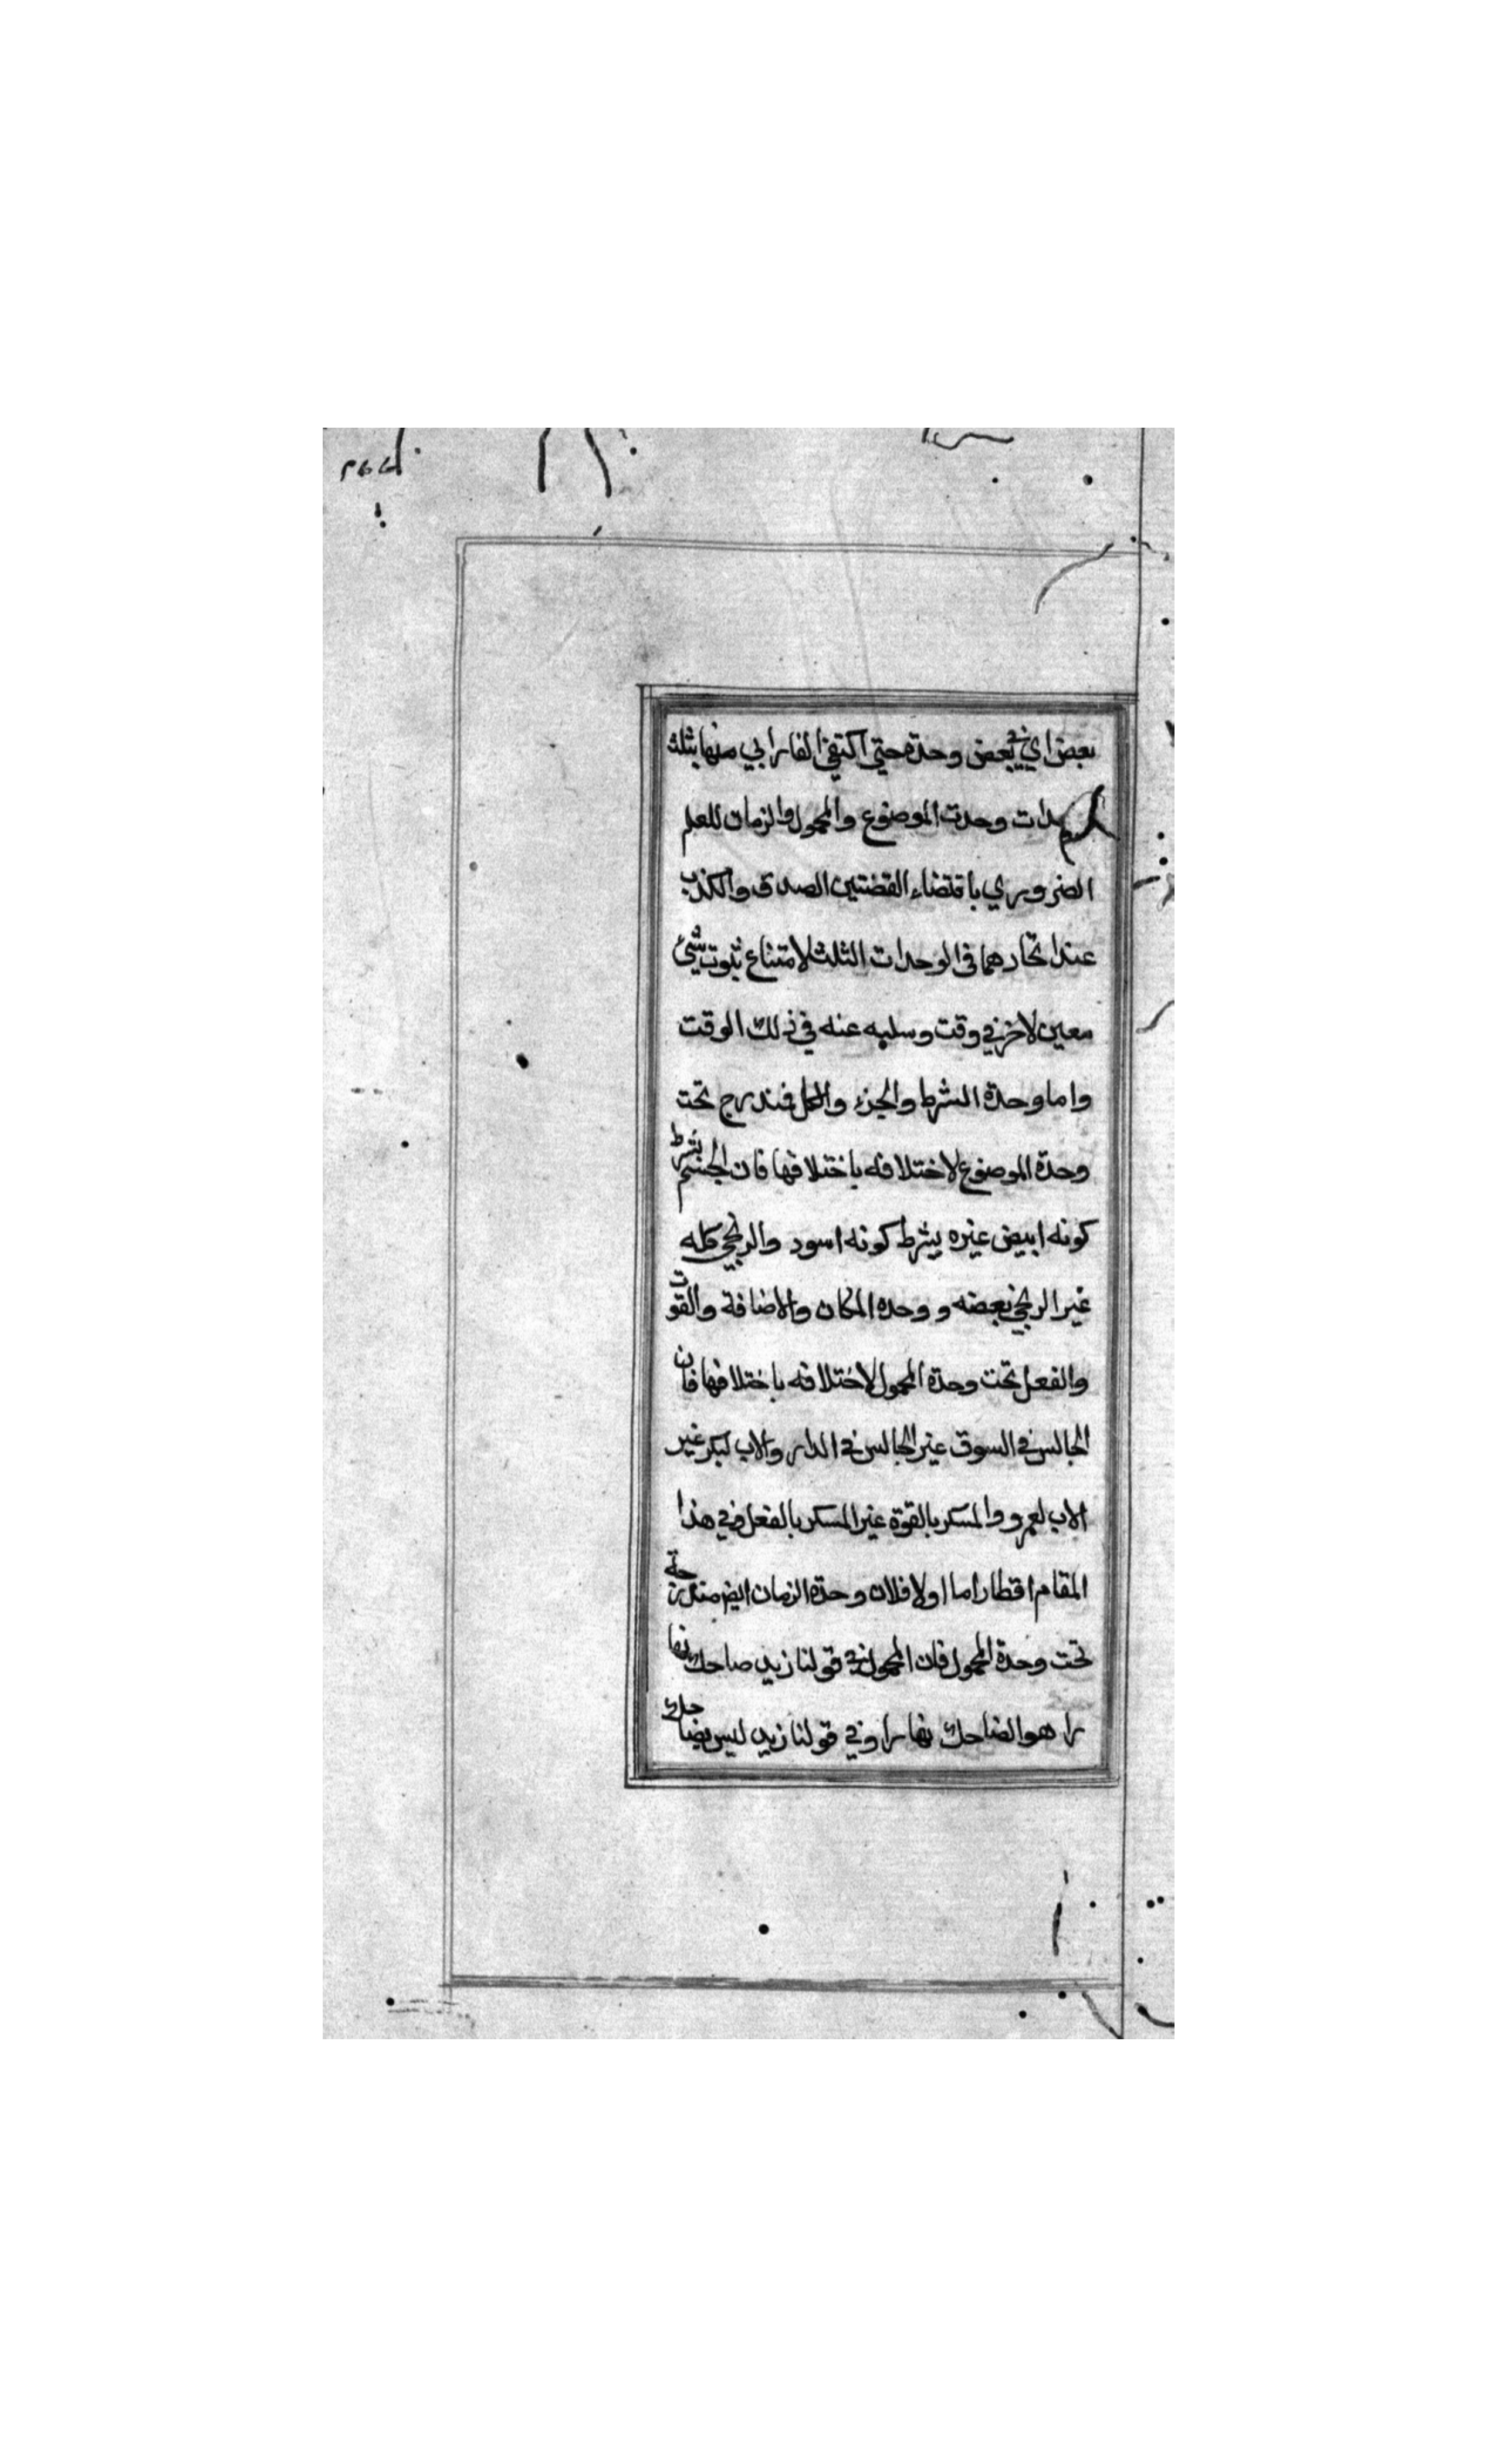 بعض اي في بعض وحدة حتي اكتفي الفارابي منها بثلث
وحدات وحدت الموضوع والمحمول والزمان للعلم
الضروري باقتضاء القضتين الصدق والكذب
عند اتحادهما في الوحدات الثلث لامتناع ثبوت شيئ
معين لاخر في وقت وسلبه عنه في ذلك الوقت
واما وحدة الشرط والجزء والكل فمندرج تحت
وحدة الموضوع لاختلافه باختلافها فان الجسم بشرط
كونه ابيض غيره بشرط كونه اسود والزنجي كله
غير الزنجي بعضه و وحده المكان والاضافة والقوت
والفعل تحت وحدة المحمول لاختلافه باختلافها فان
الجالس في السوق غير الجالس في الدار والاب لبكر غير
الاب لعمرو والمسكر بالقوة غير المسكر بالفعل وفي هذا
المقام اقطار اما اولا فلان وحدة الزمان ايض مندرجة
تحت وحدة المحمول فان المحمول في قولنا زيد ضاحك نها
را هو الضاحك نهارا وفي قولنا زيد ليس بضاحك